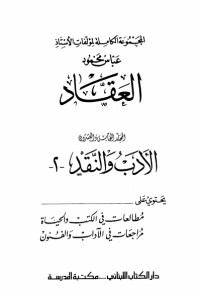 المجموعة الكاملة لمؤلفات الأستاذ
عباس محمود
العقاد
المجلد الخامس والعشرون
الأدب والنقد -٢-
يحتوي على
مطالعات في الكتب والحياة
مراجعات في الآداب والفنون
دار الكتاب اللبناني مكتبة المدرسة